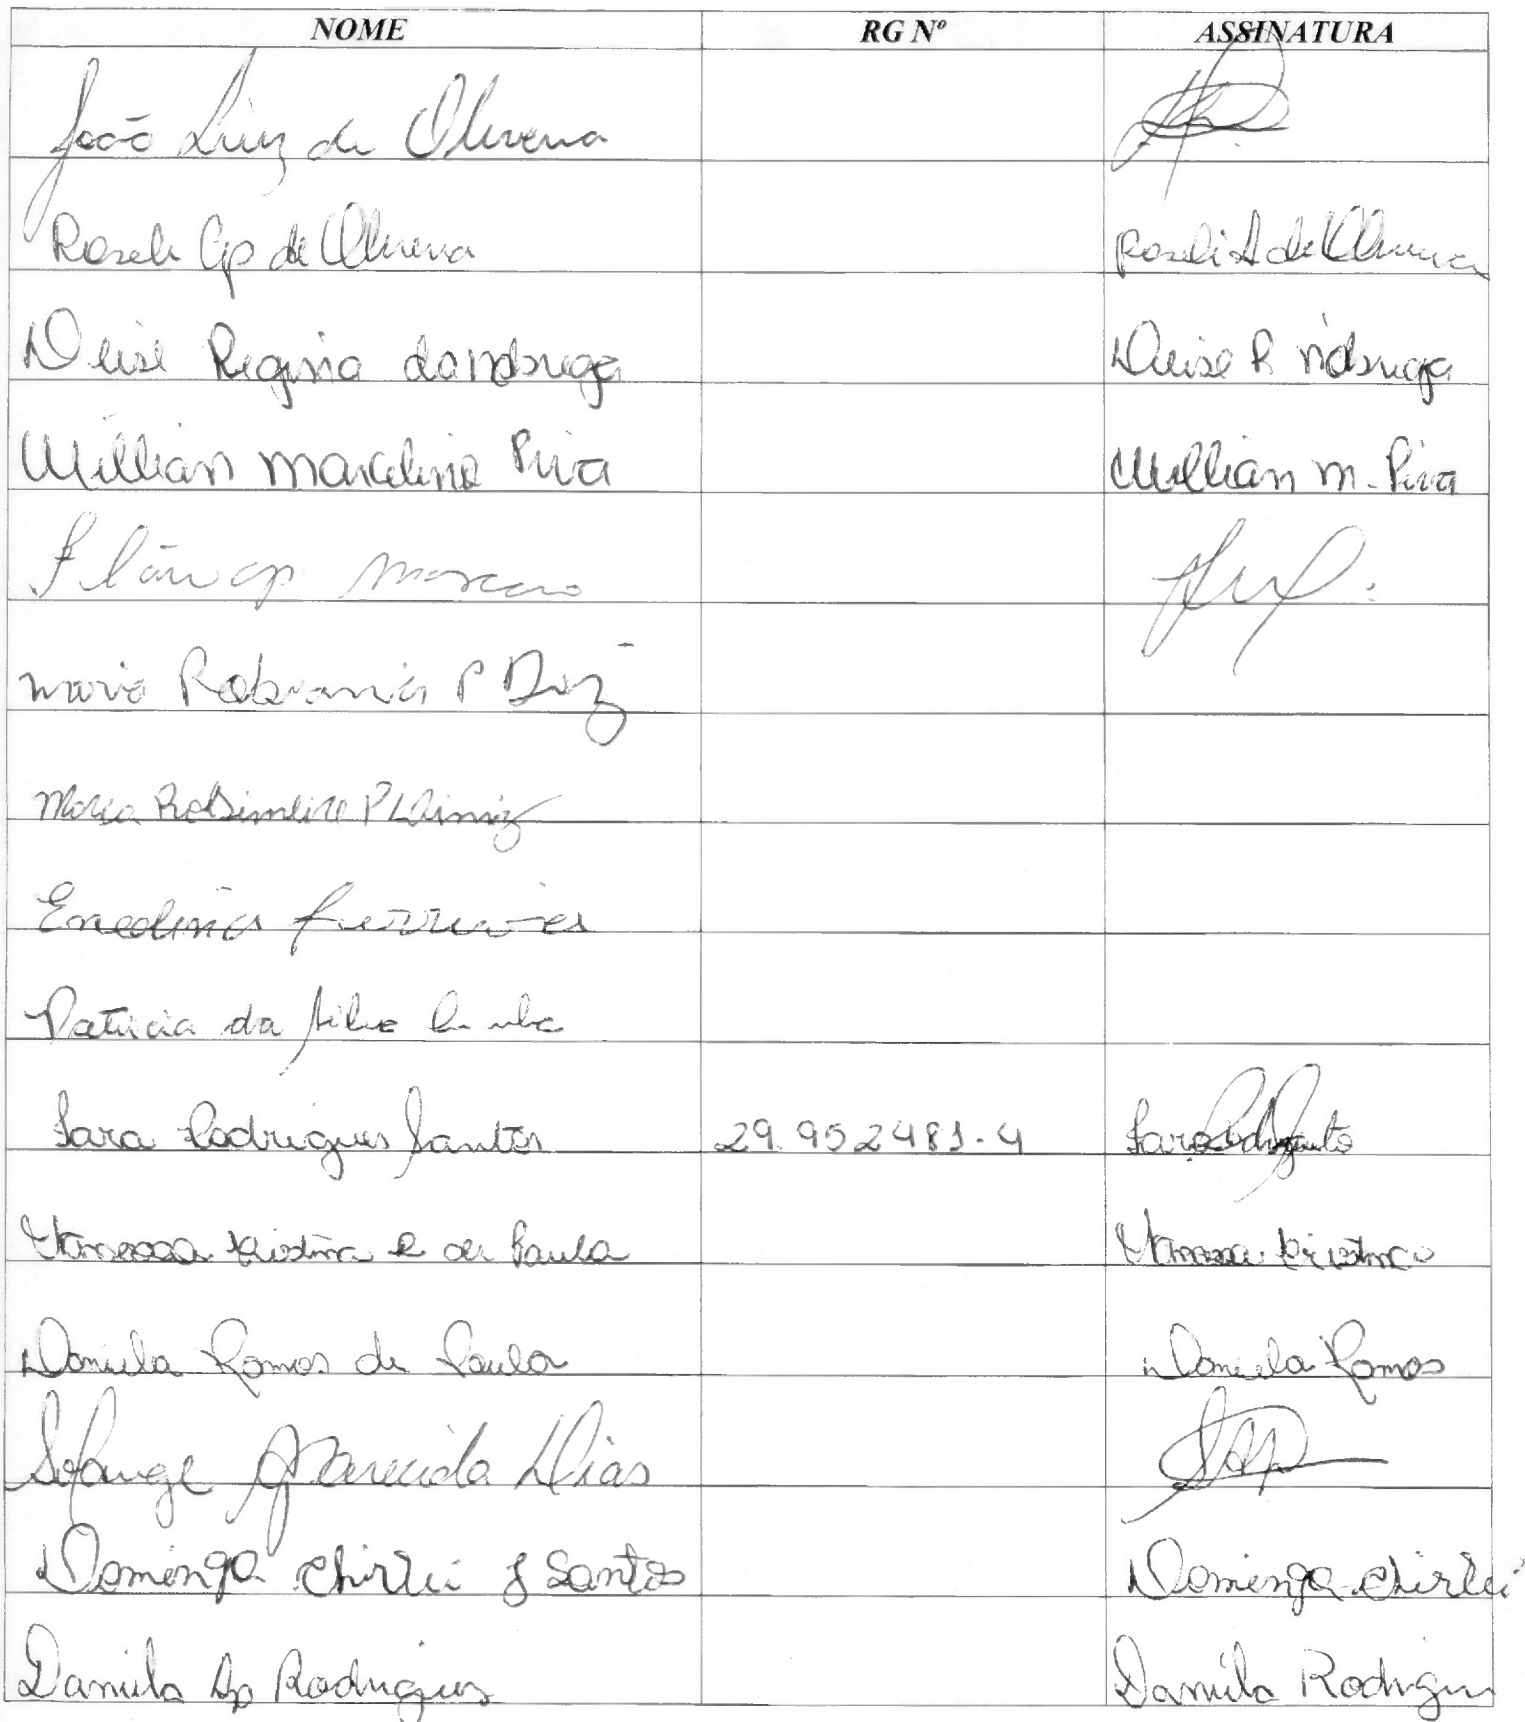 NOME RG Nº ASSINATURA
João Luiz de Oliveira
Roseli Ap de Oliveira Roseli A de Oliveira
Deise Regina da Nobrega Deise R Nobrega
Willian Marcelino Piva Willian M. Piva
Maria P Diniz
Maria Rosimeire P Diniz
Enedina Ferreira
Patricia da Silva
Sara Rodrigues Santos 29.952481-4 Sara
Vanessa Cristina R de Paula Vanessa Cristina
Daniela Ramos de Paula Daniela Ramos
Solange Aparecida Dias
Dominga Chirlei J Santos Dominga Chirlei
Daniela Ap Rodrigues Daniela Rodrigues